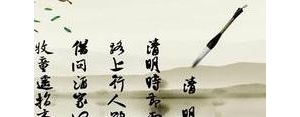 清明
清明時節雨
路上行人
借問酒家
牧童遥指